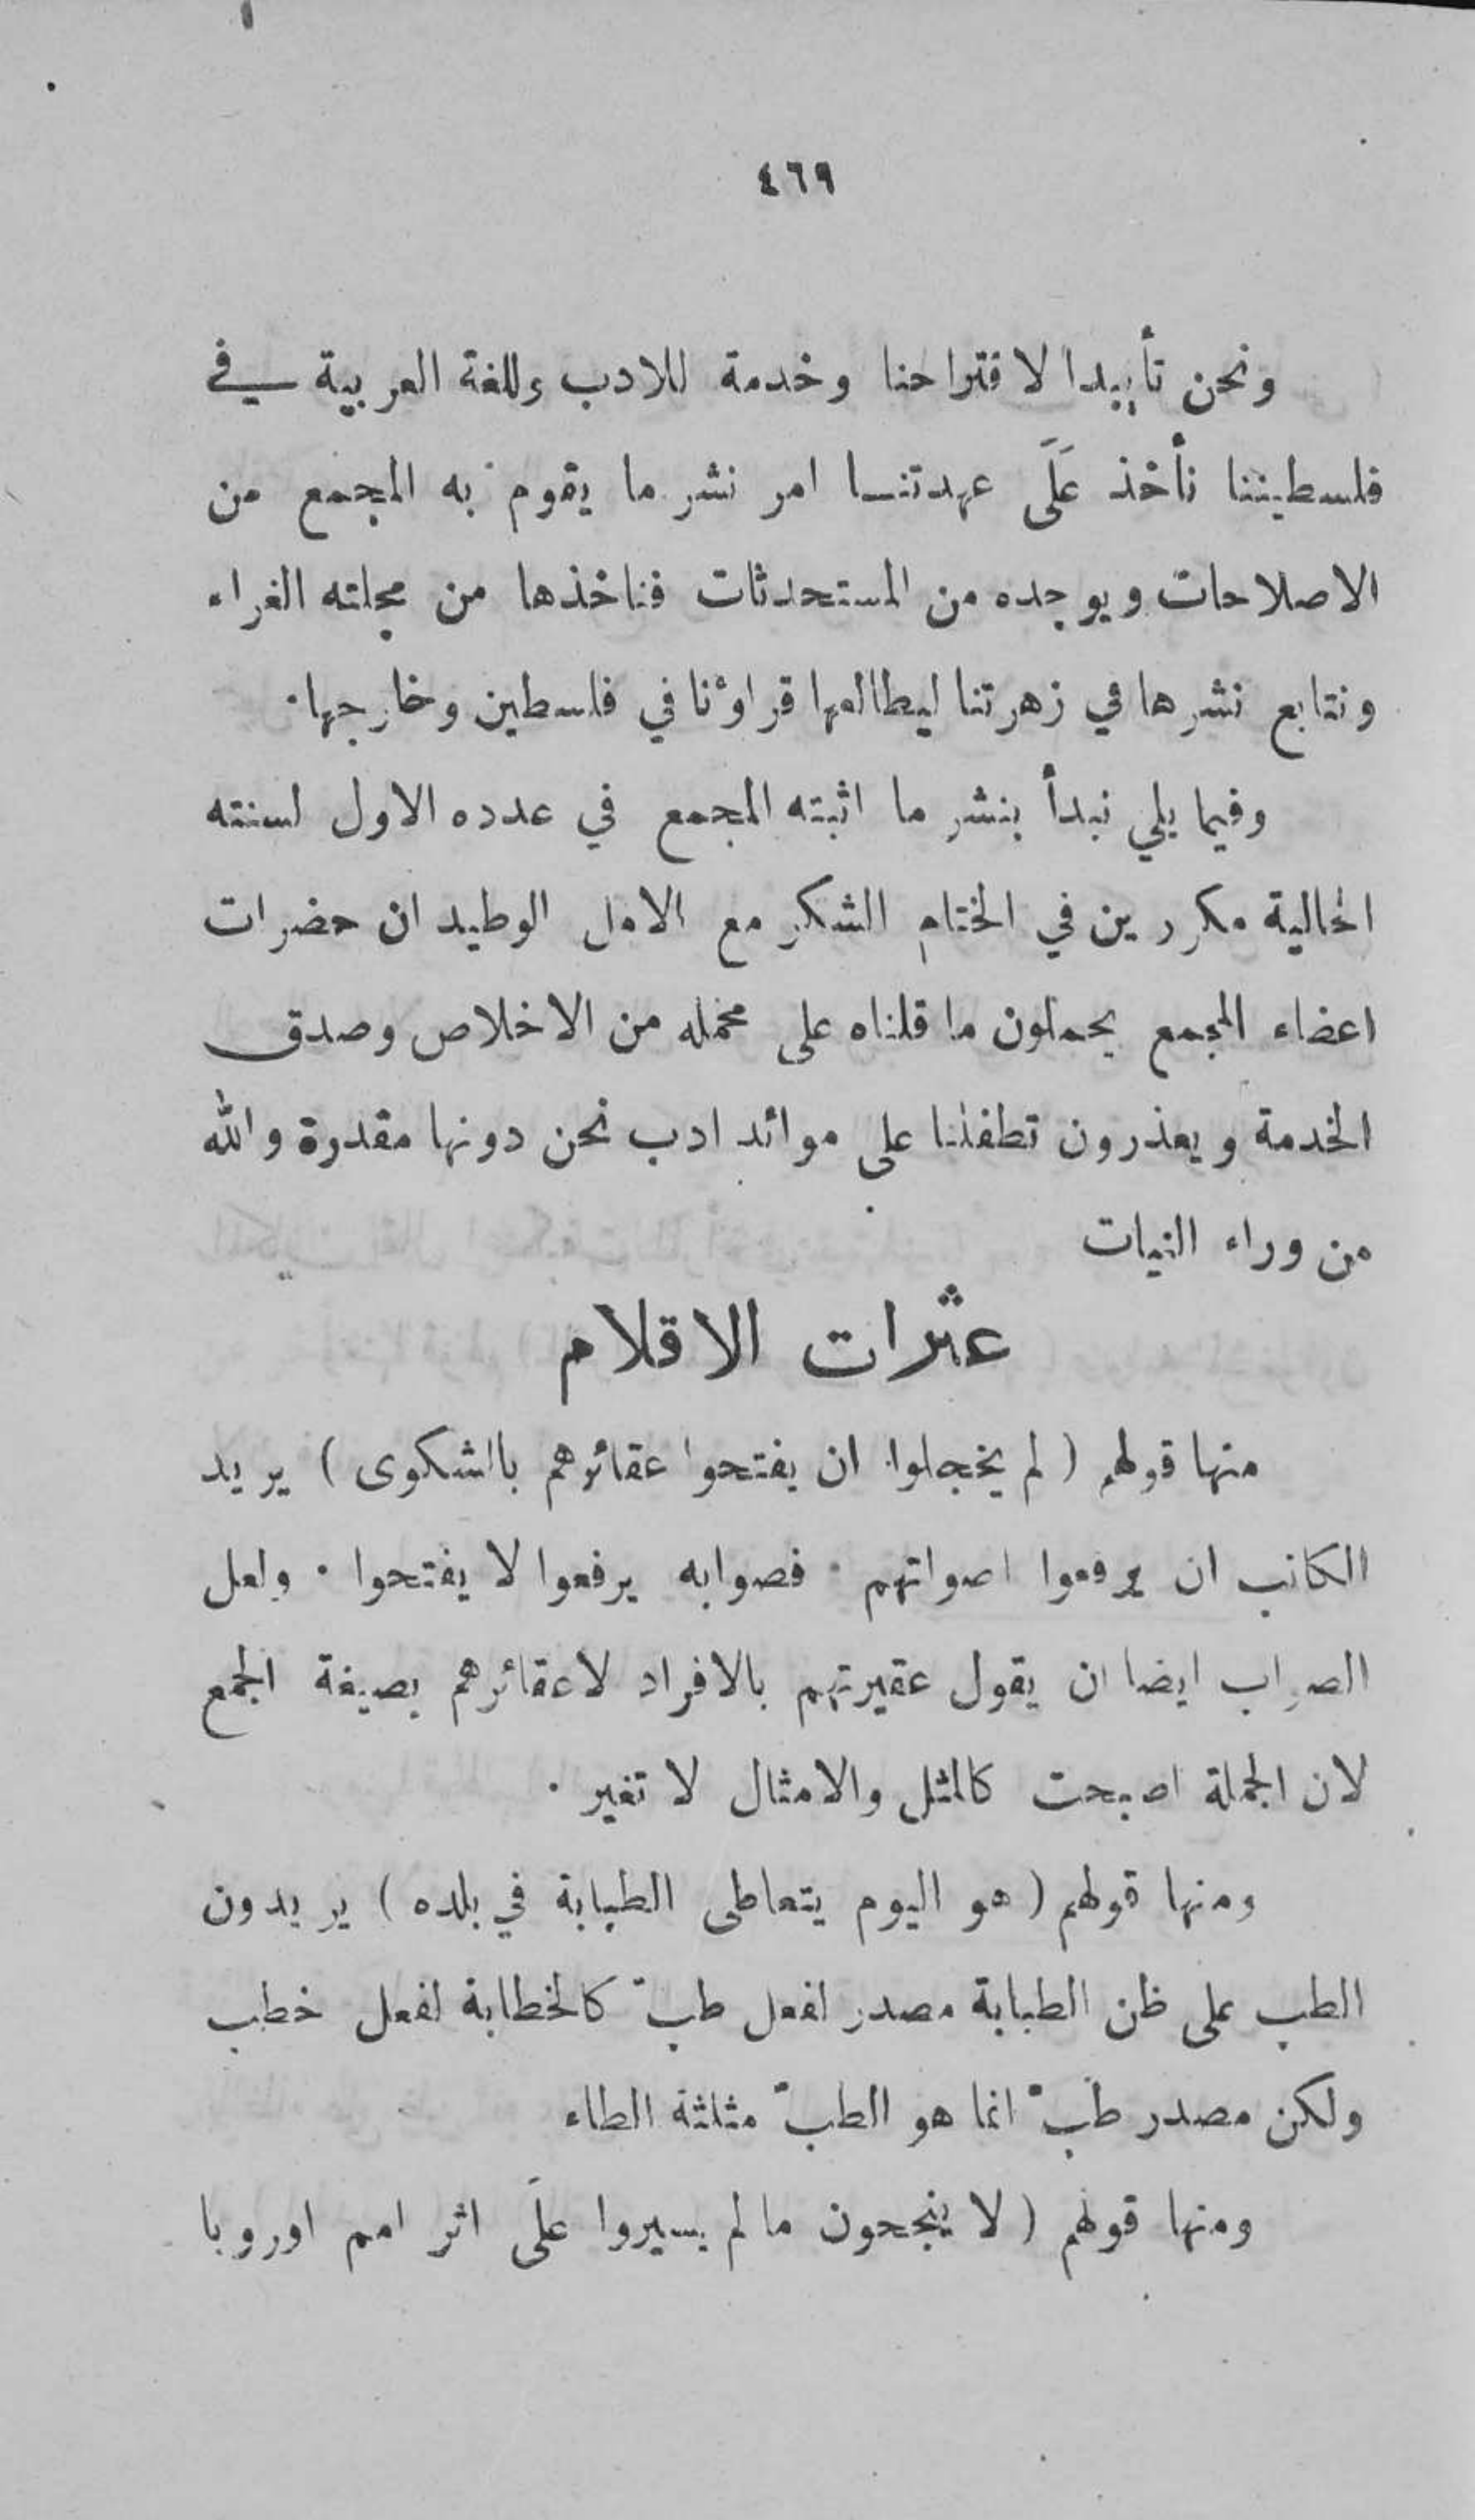 ٤٦٩
ونحن تأييدا لاقتراحنا وخدمة للادب وللغة العربية في
فلسطيننا نأخذ عَلَى عهدتنا امر نشر ما يقوم به المجمع من
الاصلاحات ويوجده من المستحدثات فناخذها من مجلته الغراء
ونتابع نشرها في زهرتنا ليطالعها قراؤنا في فلسطين وخارجها.
وفيما يلي نبدأ بنشر ما اثبته المجمع في عدده الاول لسنته
الحالية مكررين في الختام الشكر مع الامل الوطيد ان حضرات
اعضاء المجمع يحملون ما قلناه على محمله من الاخلاص وصدق
الخدمة ويعذرون تطفلنا على موائد ادب نحن دونها مقدرة والله
من وراء النيات
عثرات الاقلام
منها قولهم (لم يخجلوا ان يفتحوا عقائرهم بالشكوى) يريد
الكاتب ان يرفعوا اصواتهم . فصوابه يرفعوا لا يفتحوا . ولعل
الصواب ايضا ان يقول عقيرتهم بالافراد لا عقائرهم بصيغة الجمع
لان الجملة اصبحت كالمثل والامثال لا تغير .
ومنها قولهم (هو اليوم يتعاطى الطبابة في بلده) يريدون
الطب على ظن الطبابة مصدر لفعل طبّ كالخطابة لفعل خطب
ولكن مصدر طبّ انما هو الطبّ مثلثة الطاء
ومنها قولهم (لا ينجحون ما لم يسيروا علَى اثر امم اوروبا